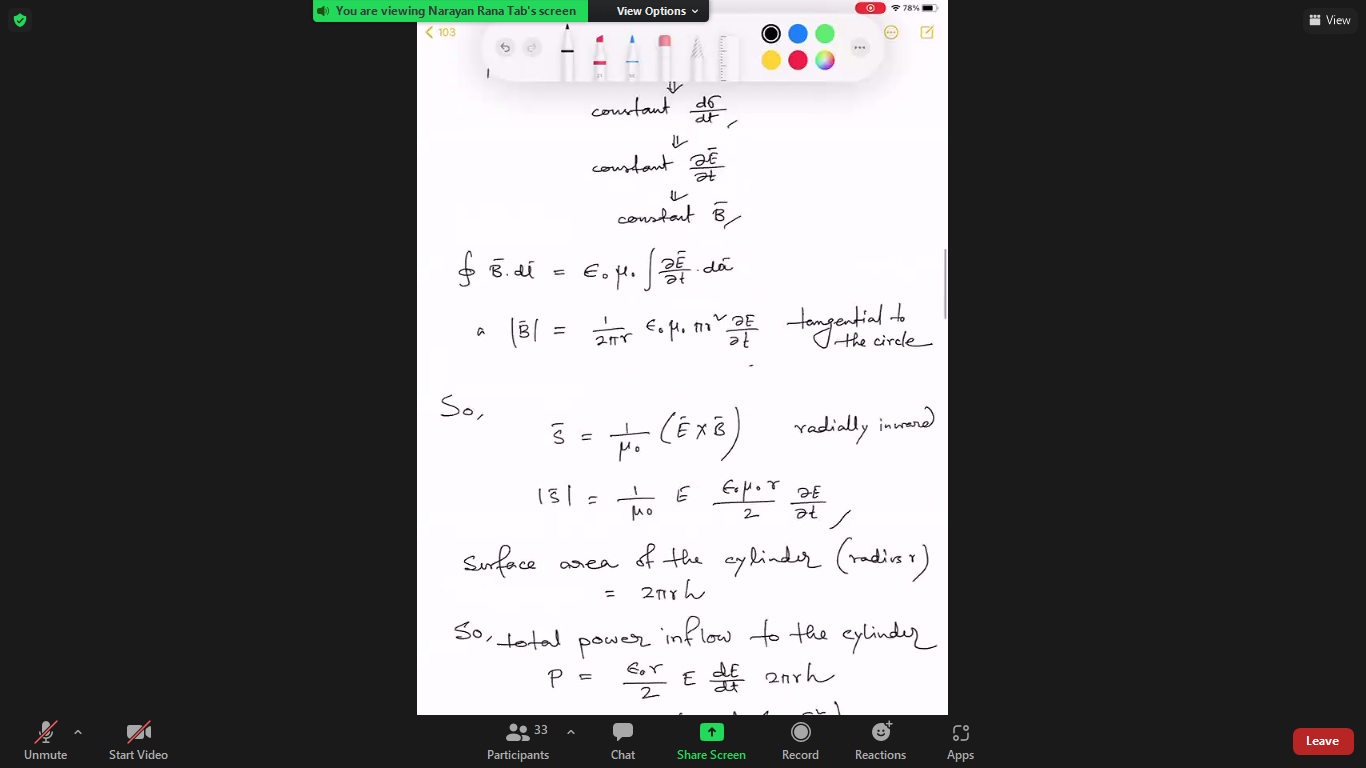 You are viewing Narayan Rana Tab's screen
View Options
78%
View
103
⇓
constant dσ/dt,
⇓
constant ∂Ē/∂t
⇓
constant B̄,
∮ B̄.dl̄ = ϵ₀ μ₀ ∫ ∂Ē/∂t . dā
a |B̄| = 1/2πr ϵ₀ μ₀ πr² ∂E/∂t tangential to the circle
So,
S̄ = 1/μ₀ (Ē × B̄) radially inward
|S̄| = 1/μ₀ E ϵ₀μ₀r/2 ∂E/∂t
surface area of the cylinder (radius r)
= 2πrh
So, total power inflow to the cylinder
P = ϵ₀r/2 E dE/dt 2πrh
Unmute
Start Video
Participants
33
Chat
Share Screen
Record
Reactions
Apps
Leave